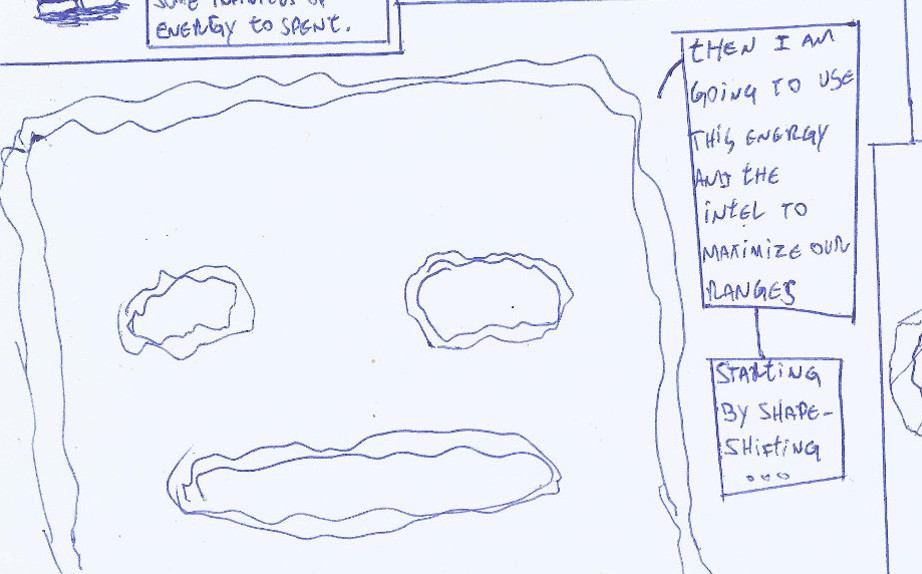 ENERGY TO SPENT.
THEN I AM
GOING TO USE
THIS ENERGY
AND THE
INTEL TO
MAXIMIZE OUR
RANGES
STARTING
BY SHAPE-
SHIFTING
...